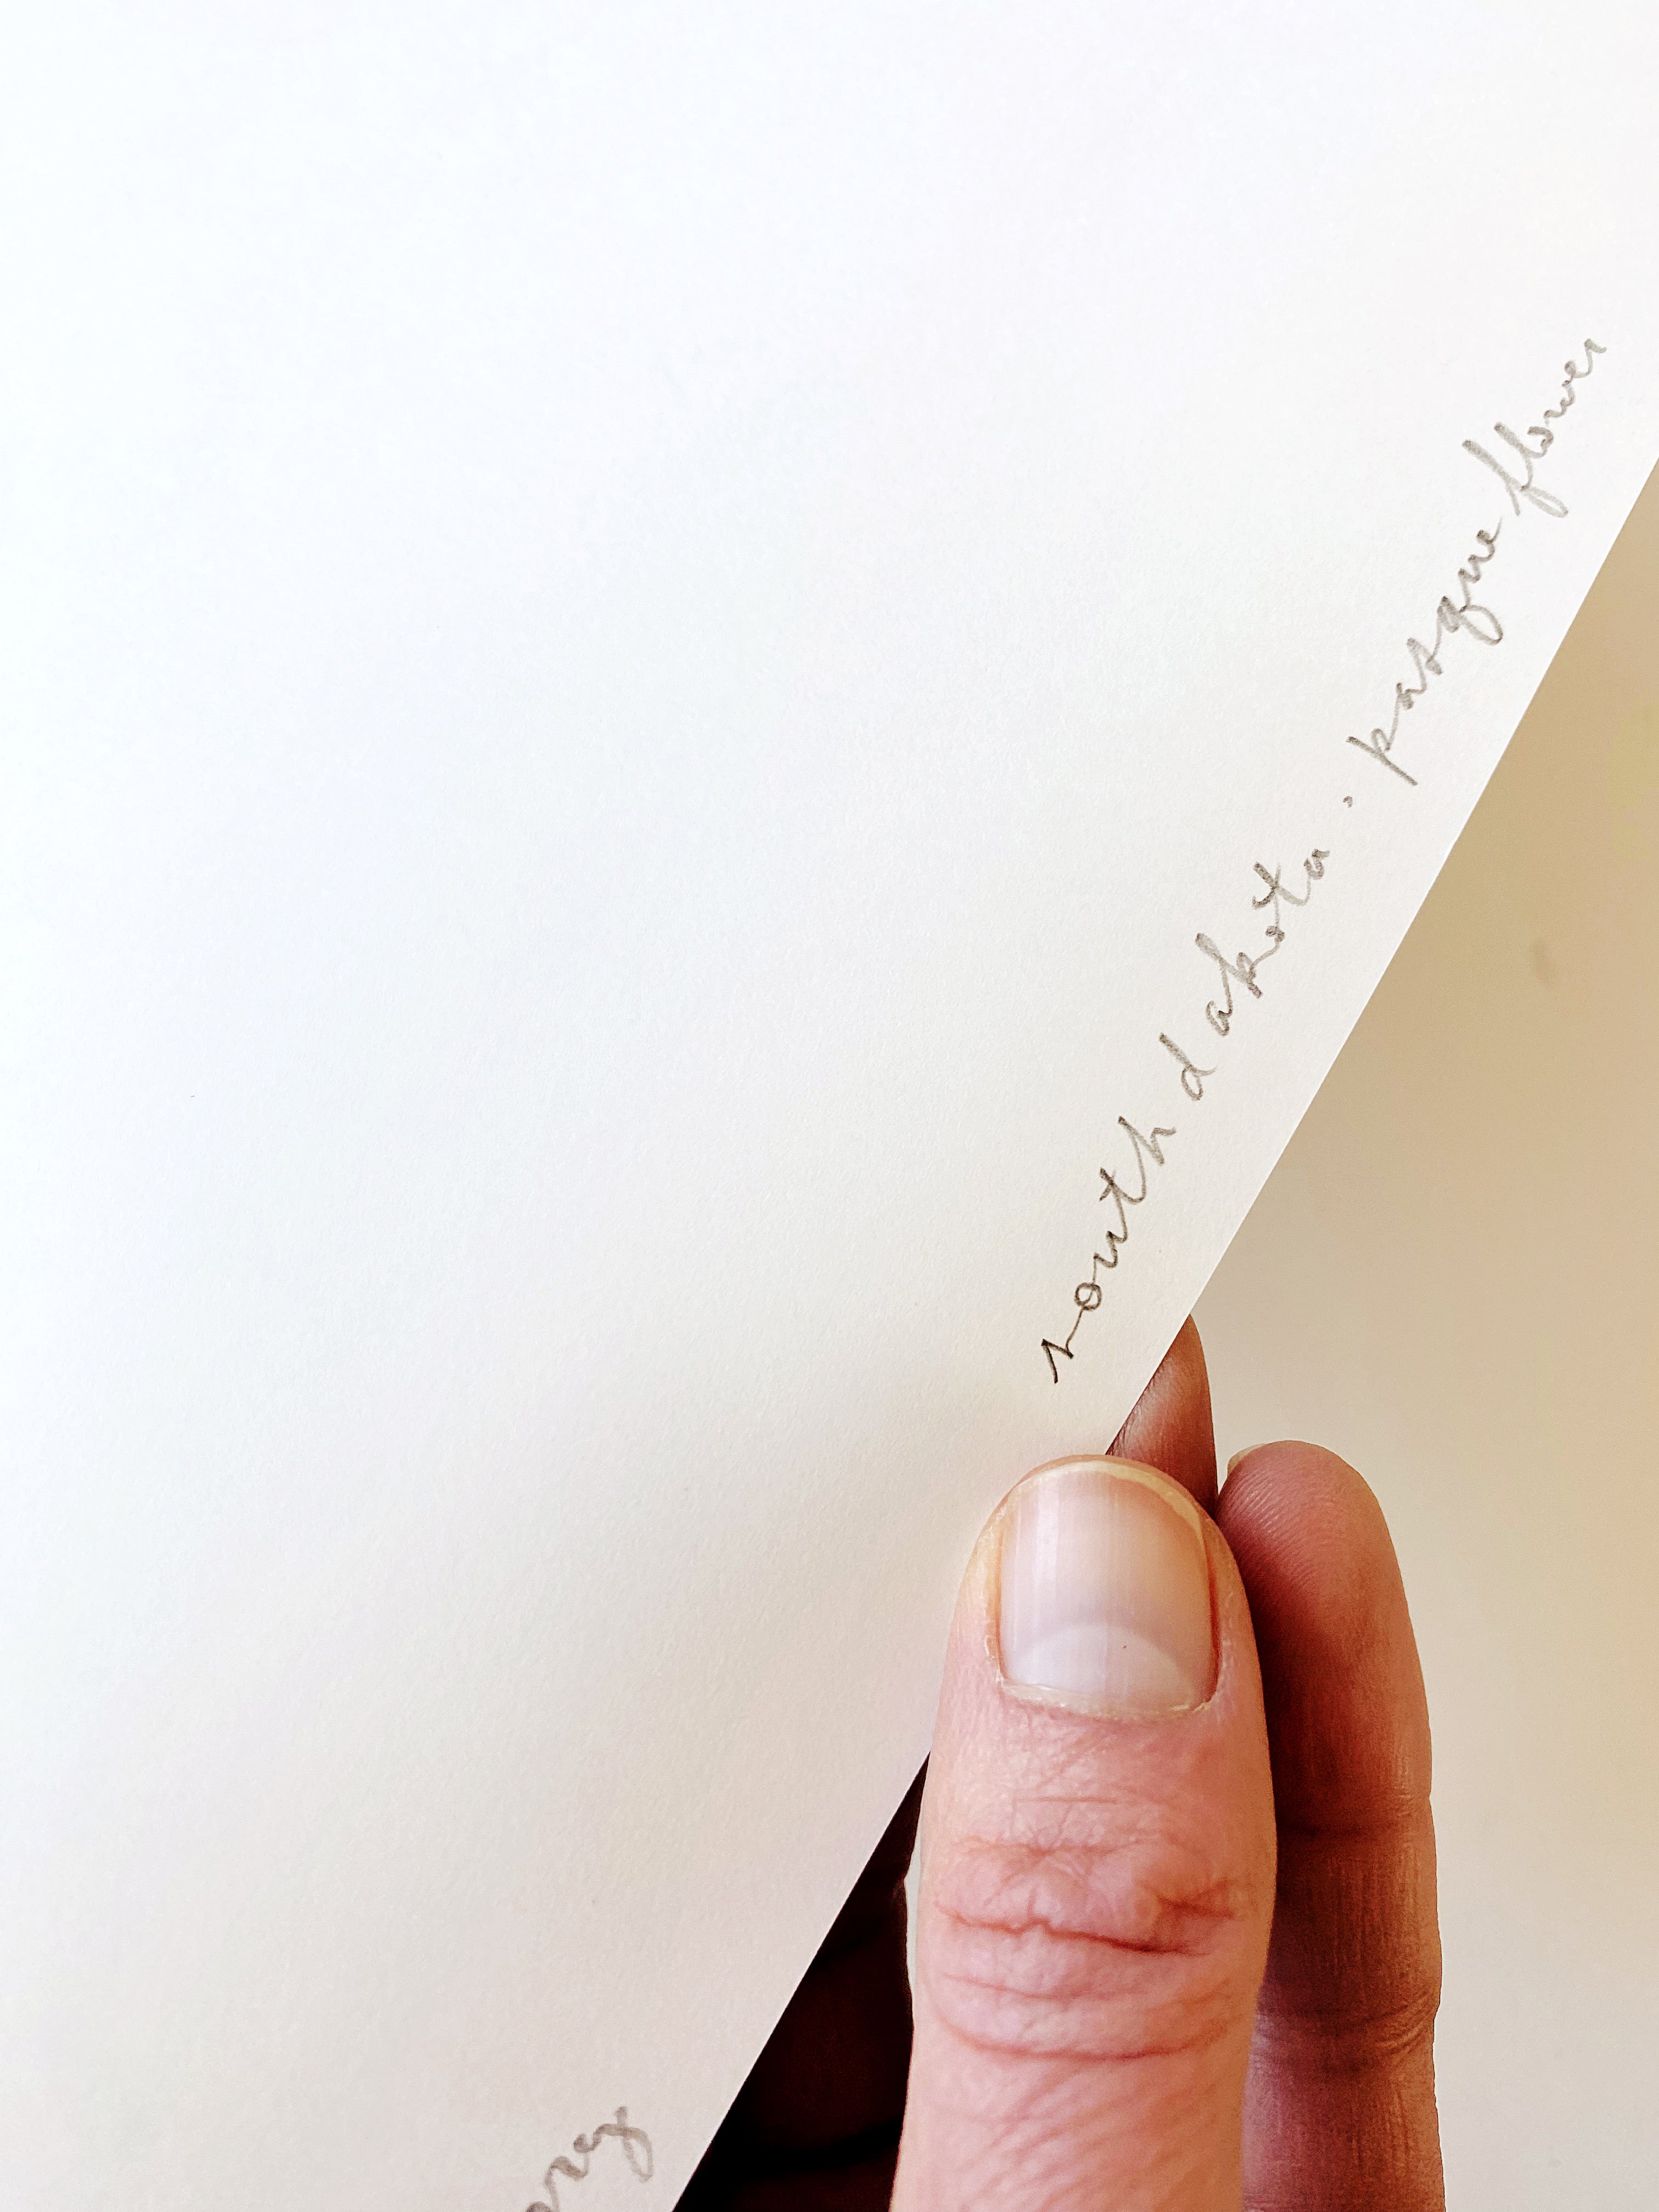 south dakota · pasque flower